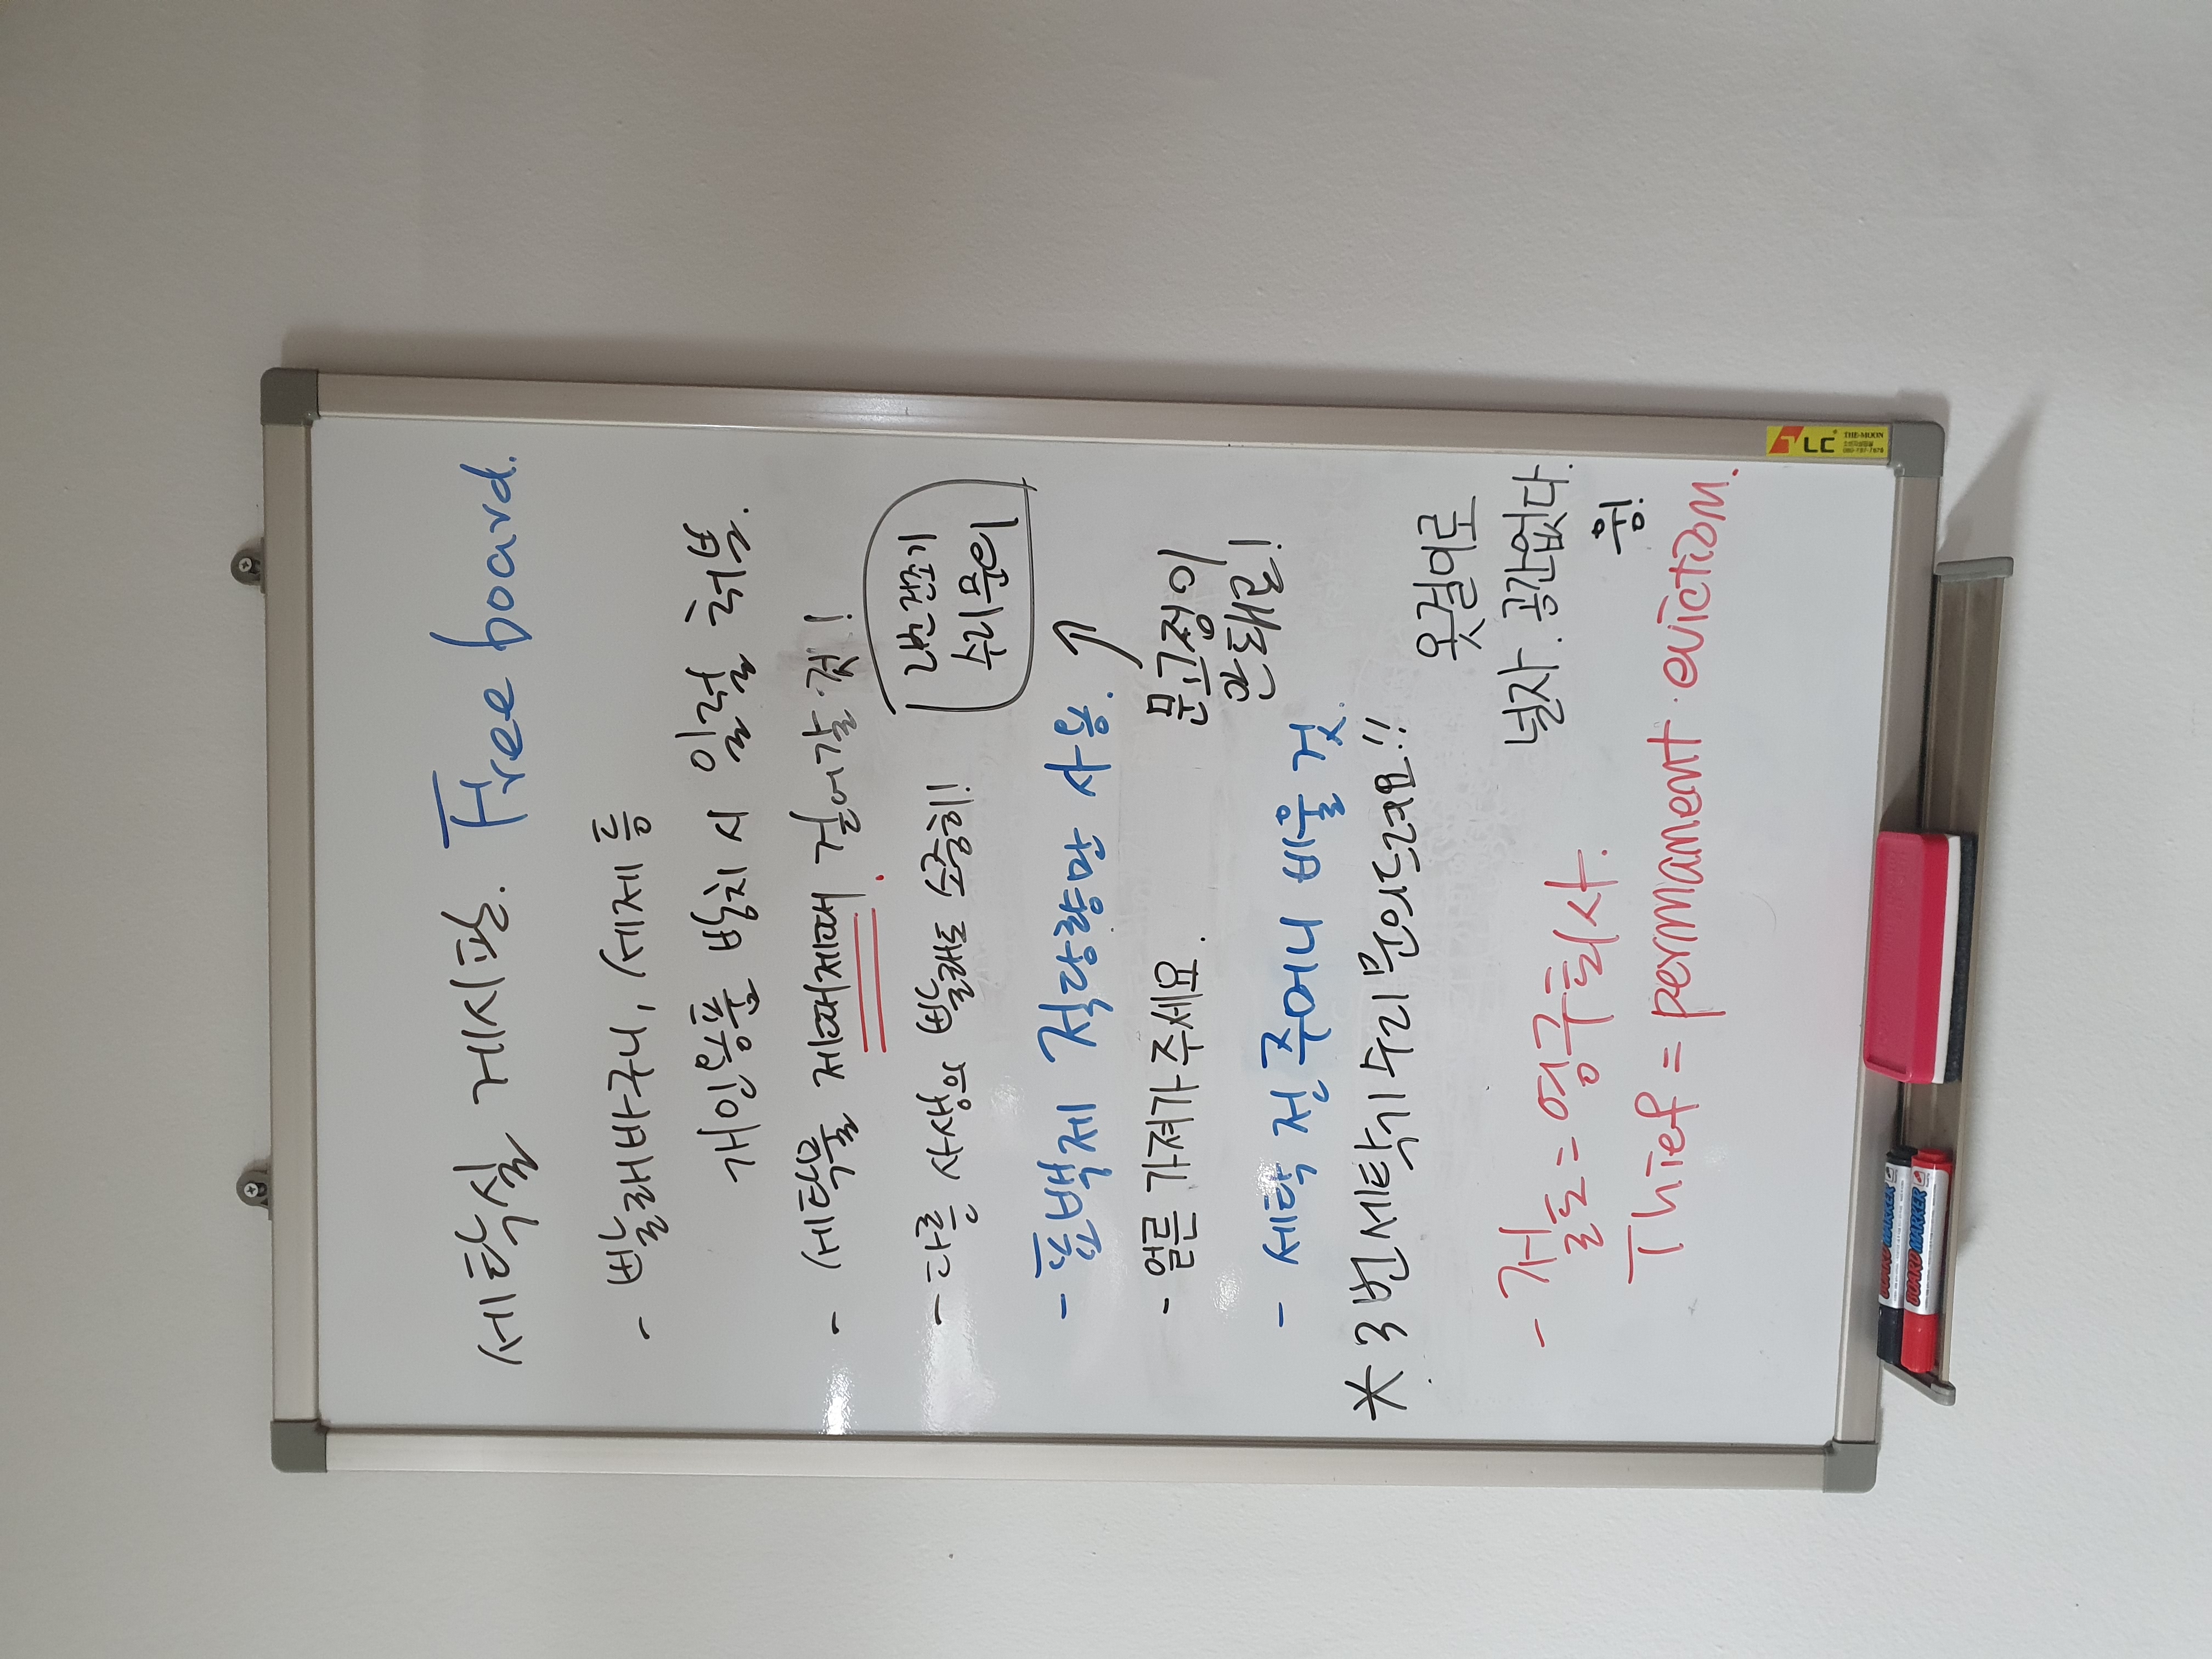 세탁실 게시판. Free board.
- 빨래바구니, 세제 등
개인용품 방치 시 일괄 처분.
- 세탁물 제때제때 걷어갈 것!
- 다른 사생의 빨래도 소중히!
2번 건조기
수리 문의
- 표백제 적당량만 사용.
- 얼른 가져가 주세요.
문고정이
안돼요!
- 세탁 전 주머니 비울 것.
* 3번 세탁기 수리 문의드려요!!
옷걸이로
널자. 공간없다.
웡!
- 절도 = 영구퇴사.
Thief = permanent eviction.
LC
THE-MOON
BOARD MARKER
BOARD MARKER